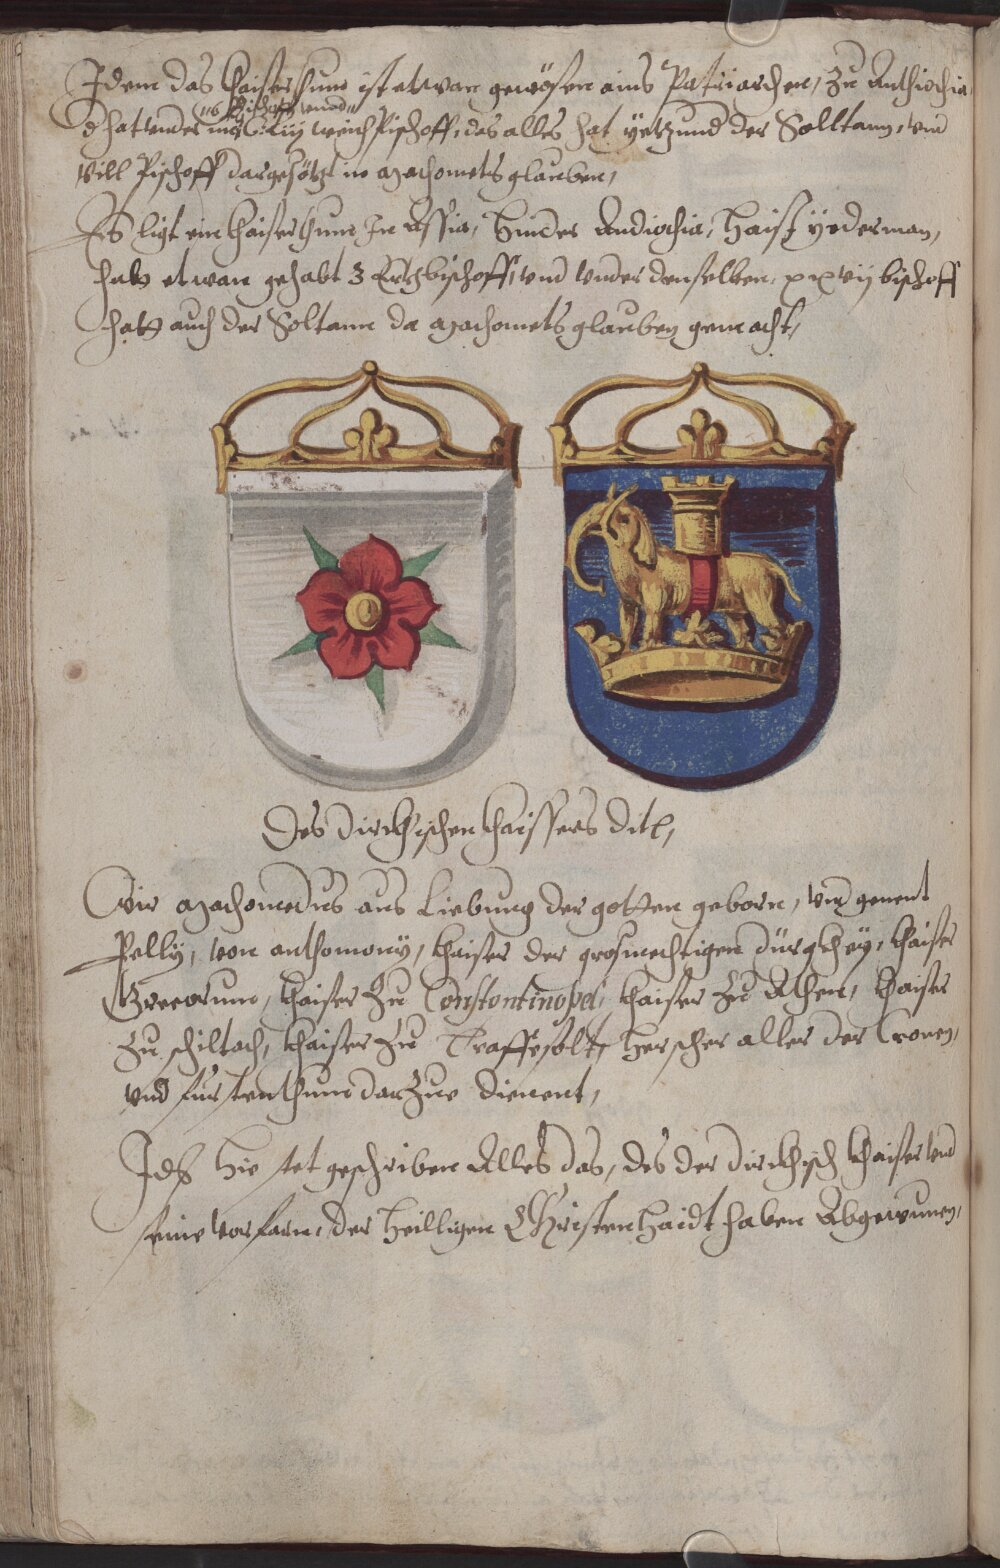 Idem das Khaiserthum ist etwan gewesen ains Patriarchen, zu Anthiochia,
Bischoff vnnd
d hat vnder im weich Pischoff, das alles hat yetzund der Solltann, vnd
vill Pischoff dargesötzt in Machomets glauben,
Es ligt ein Khaiserthum In Assia, hinder Andiochia, haist yederman,
hatt etwan gehabt 3 Ertzbischoff, vnd vnder denselben, xxvij bischoff
hatt auch der Soltann da Machomets glauben gemacht,
Des Dirckhischen Khaissers Ditl,
Wir Machomedus aus Liebung der götter geborn, vnd genent
Pelly, von anthomony, Khaiser der grosmechtigen Dürgkhey, Khaiser
Grecorum, Khaiser zu Constontinopel, Khaiser zu Athen, Khaiser
zu schiltach, Khaiser zu Traffesolt, herscher aller der Cronen,
vnd furstenthum darzue dienent,
hie stet geschriben Alles das, des der Dirckhisch Khaiser vnd
seine vorfarn, der heilligen Christenhaidt haben Abgewunen,